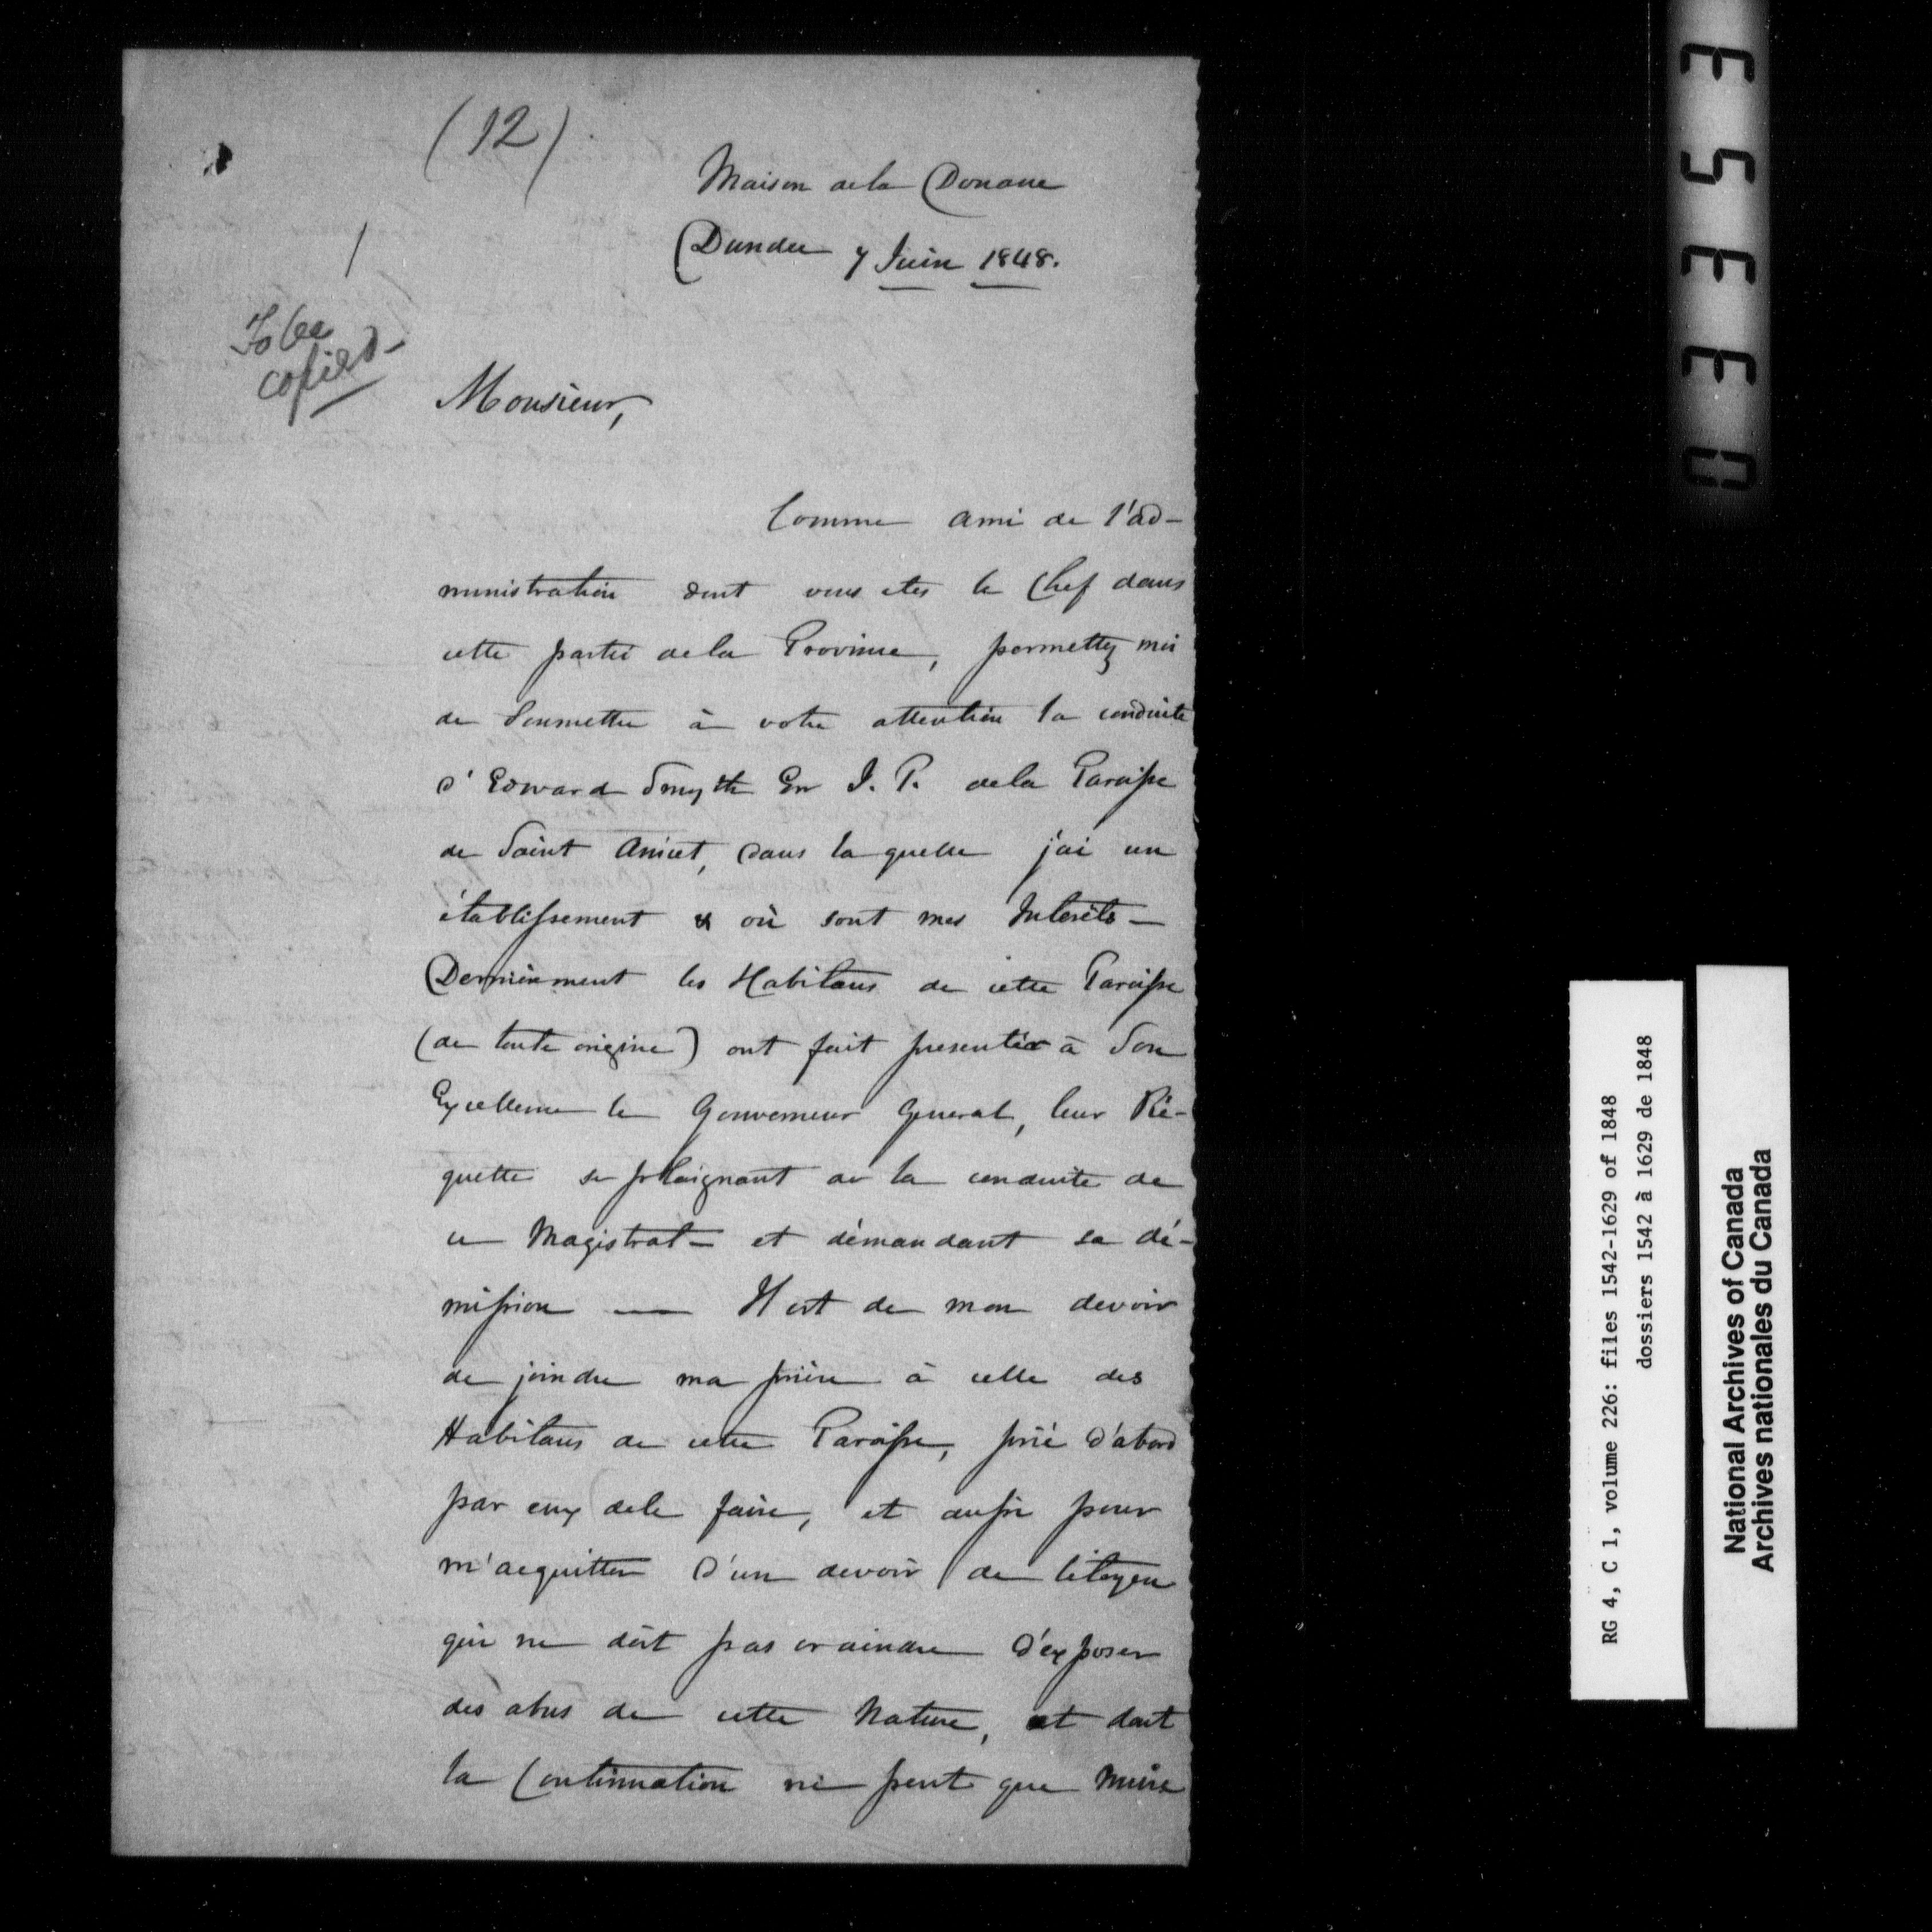 (12)
Maison de la Douane
Dundee 7 Juin 1848.
/
To be
copied -
Monsieur,
Comme ami de l'ad-
ministration dont vous etes le Chef dans
cette partie de la Province, permettez moi
de Soumettre à votre attention la conduite
d'Edward Smyth Er J. P. de la Paroisse
de Saint Anicet, dans la quelle j'ai un
établissement & où sont mes Interêts -
Dernièrement les Habitans de cette Paroisse
(de toute origine) ont fait presenter à Son
Excellence le Gouverneur General, leur Ré-
quette se plaignant de la conduite de
ce Magistrat - et démandant sa dé-
mission — Il est de mon devoir
de joindre ma prière à celle des
Habitans de cette Paroisse, prié d'abord
par eux de le faire, et aussi pour
m'acquitter d'un devoir de Citoyen
qui ne doit pas craindre d'exposer
des abus de cette Nature, et dont
la Continuation ne peut que nuire
03353
RG 4, C 1, volume 226: files 1542-1629 of 1848
dossiers 1542 à 1629 de 1848
National Archives of Canada
Archives nationales du Canada